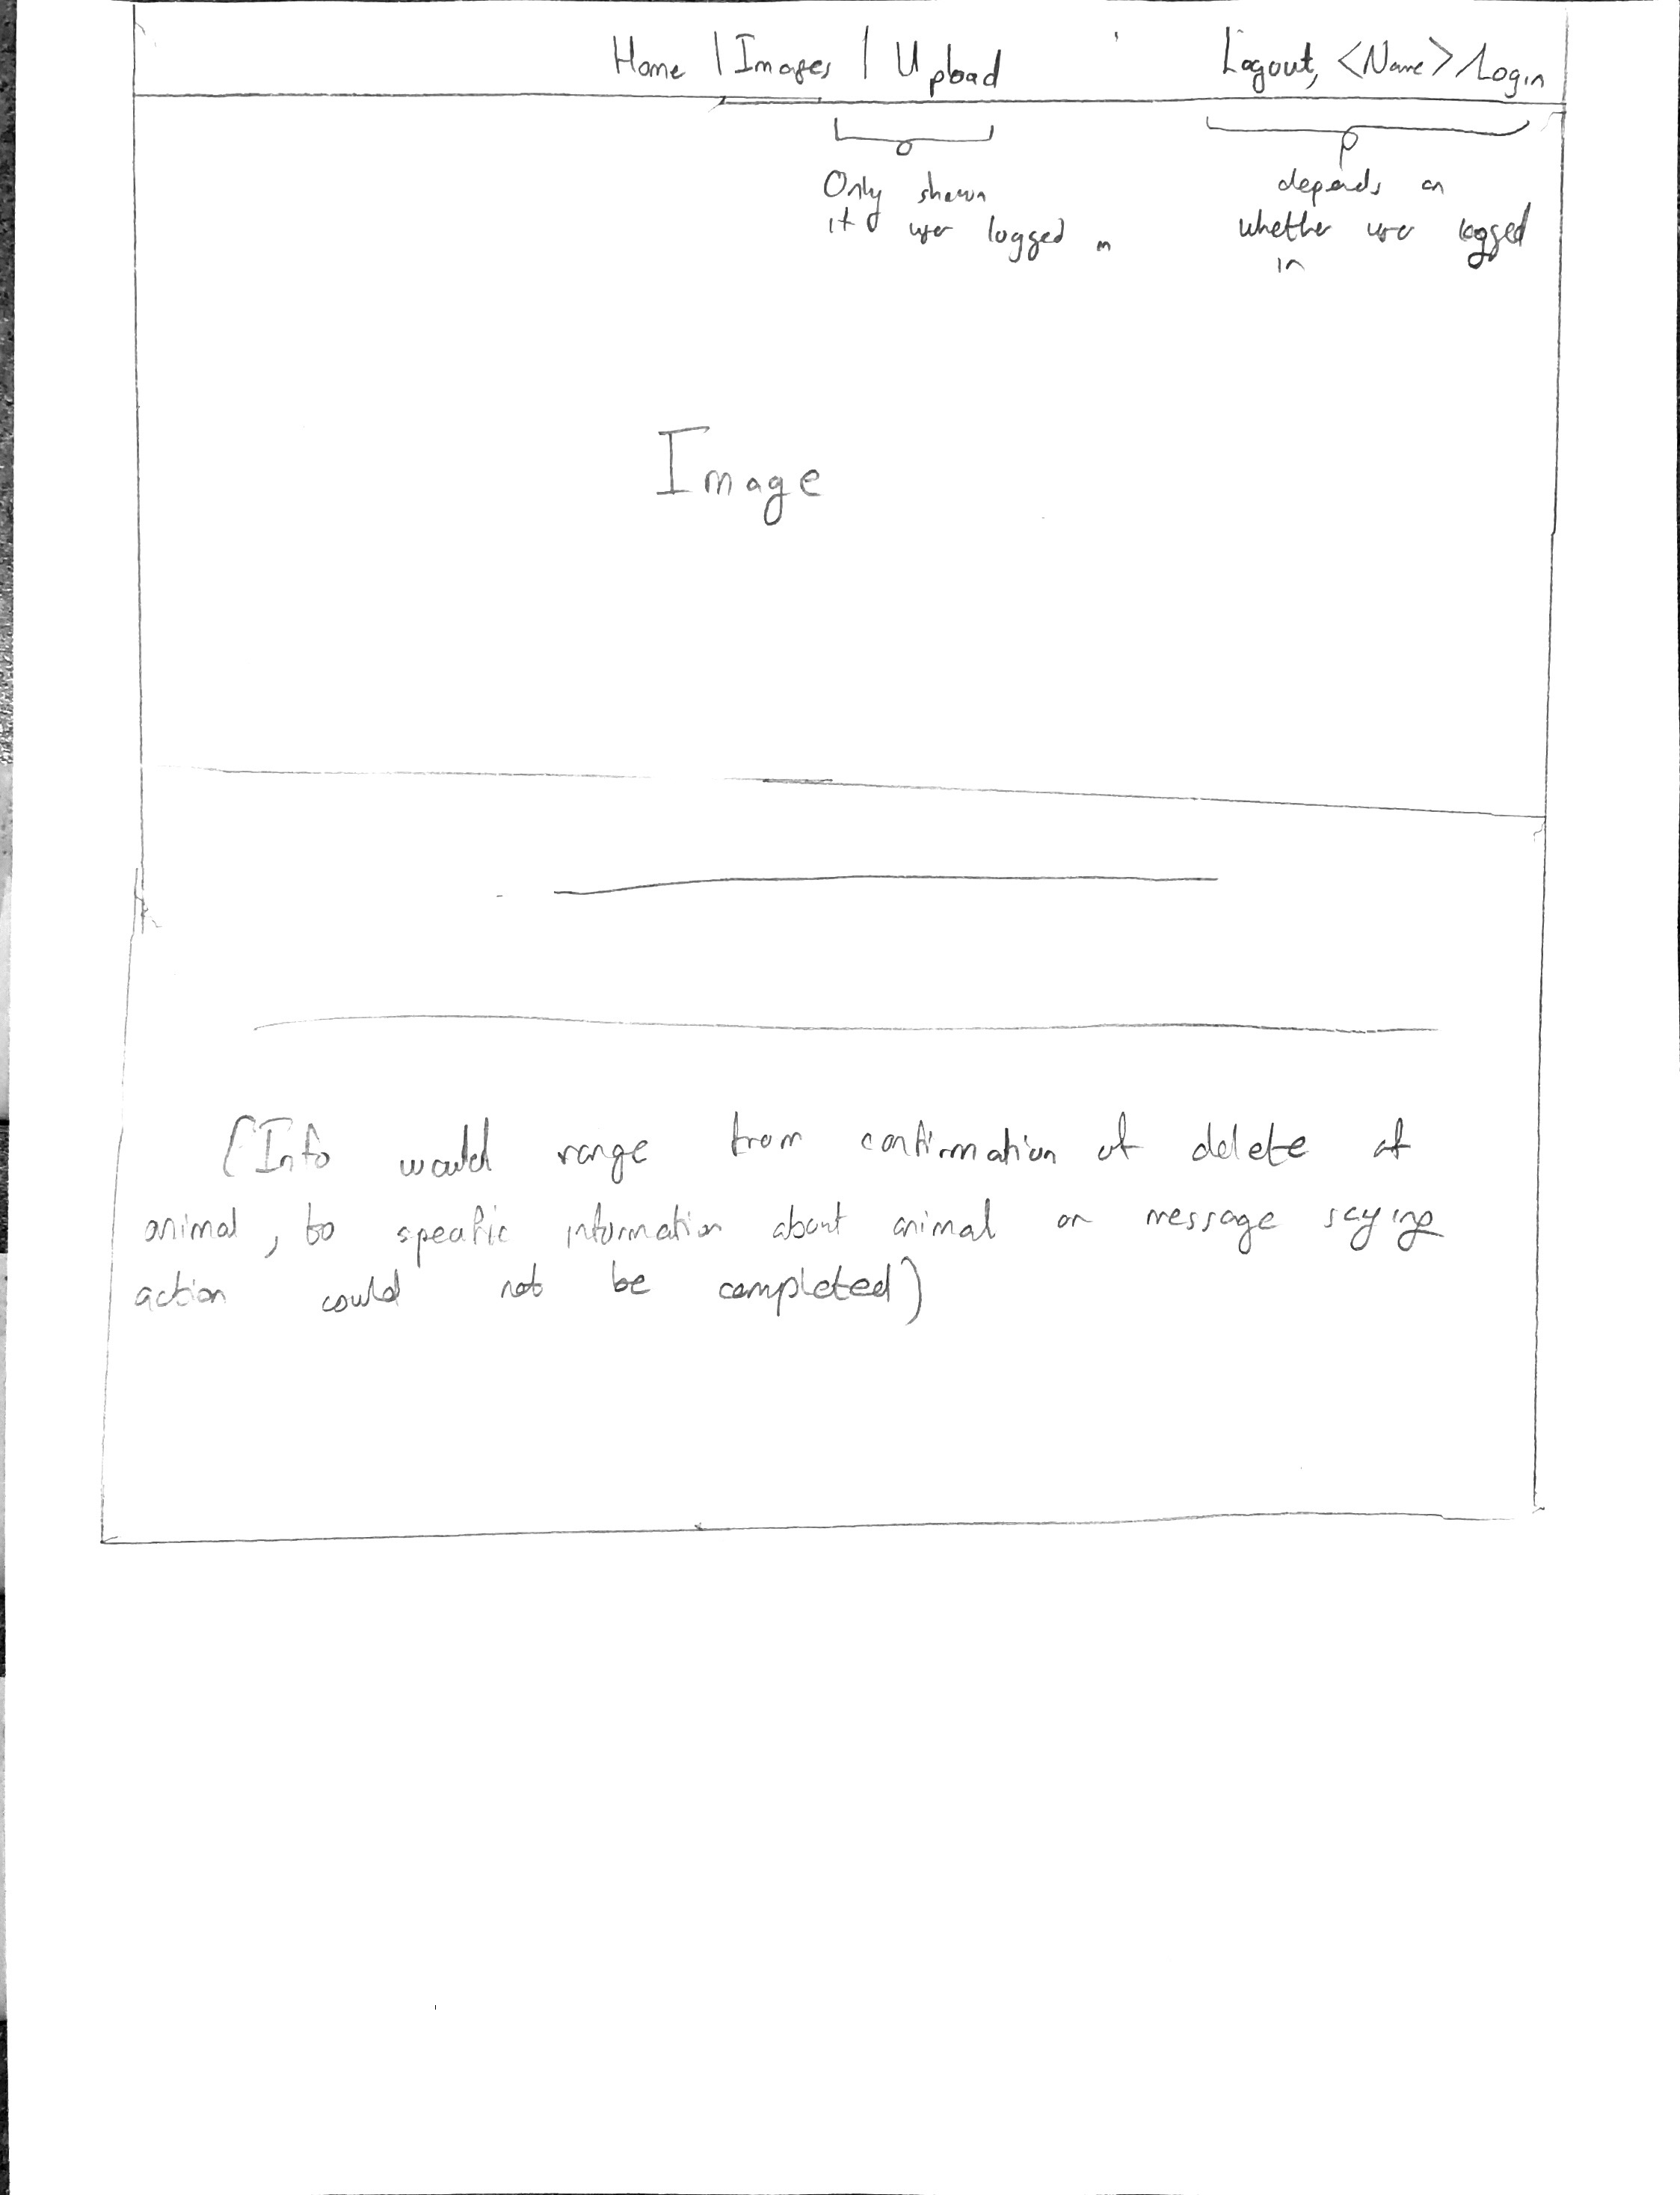 Home | Images | Upload Logout, <Name> / Login
Only shown
if user logged in
depends on
whether user logged
in
Image
(Info would range from confirmation of delete of
animal, to specific information about animal or message saying
action could not be completed)